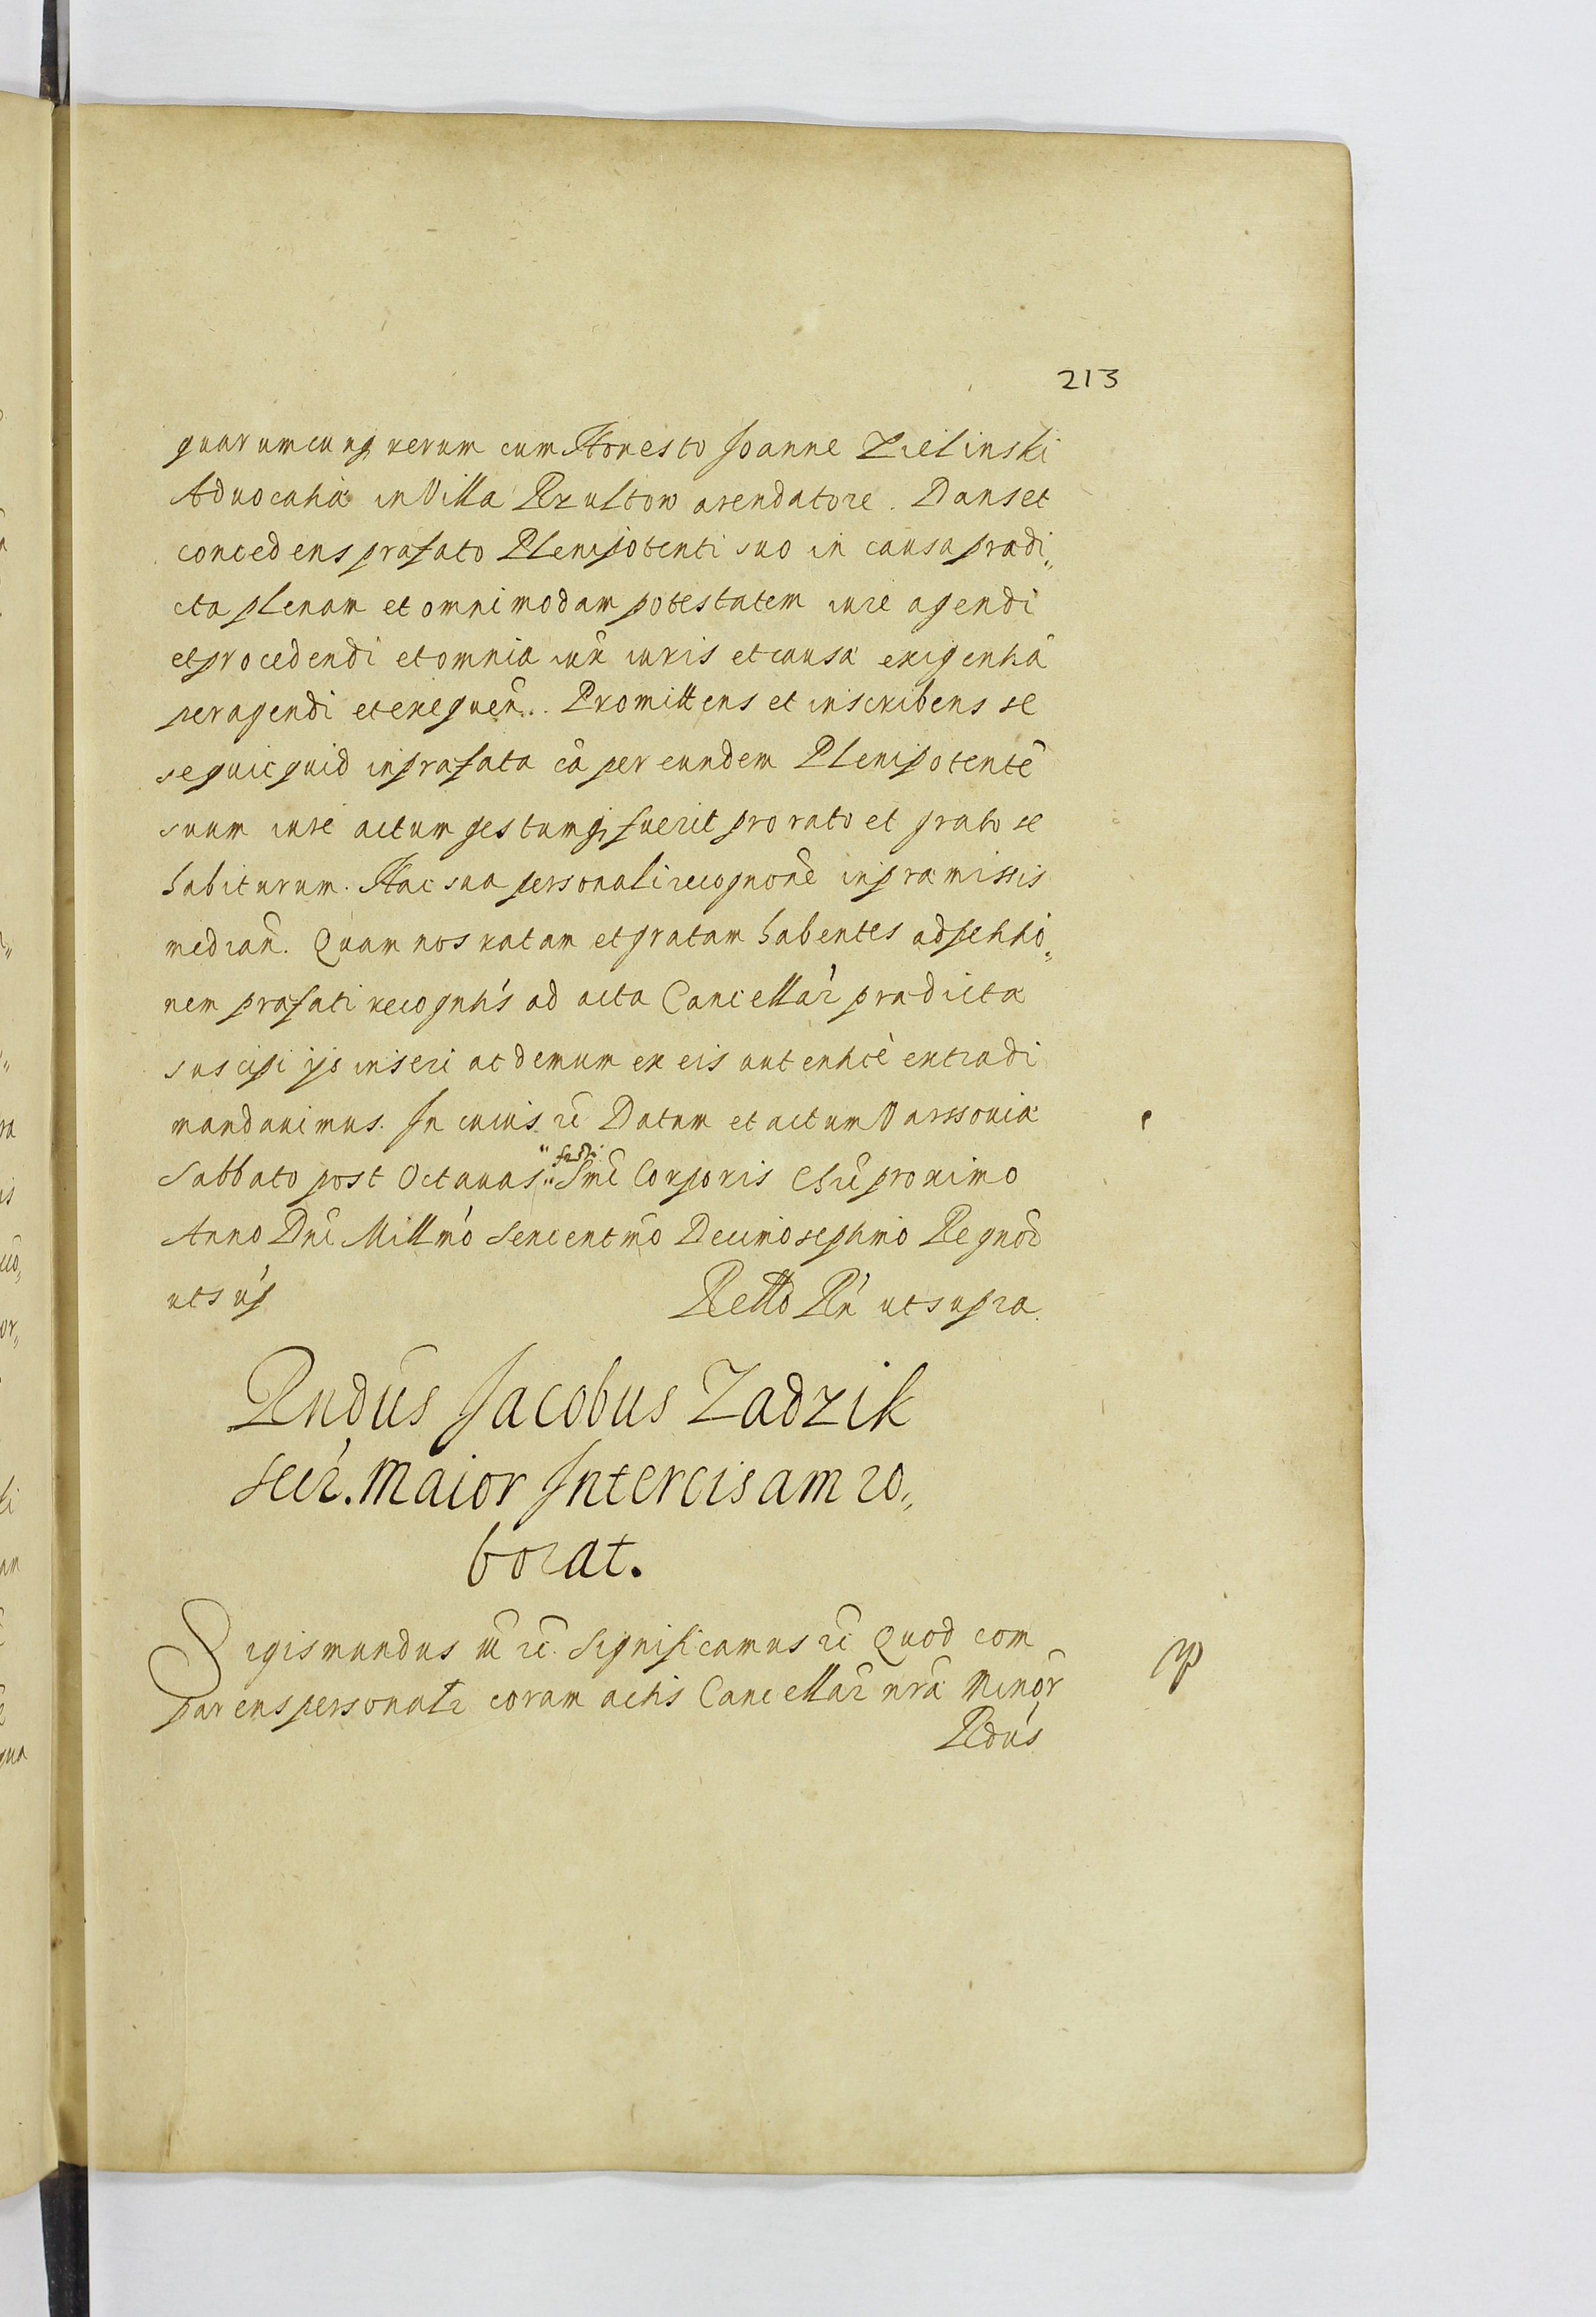 213
quarumcunq rerum cum Honesto Joanne Zielinski
Aduocatiæ in Villa Rzultow arendatore. Dans et
concedens præfato Plenipotenti suo in causa prædi„
cta plenam et omnimodam potestatem iure agendi
et procedendi et omnia iux iuris et causæ exigentiã
peragendi et exequeñ. Promittens et inscribens se
se quicquid in præfata cã per eundem Plenipotentẽ
suum iure actum gestumq fuerit pro rato et grato se
habiturum. Hac sua personali recognonẽ in præmissis
median̄. Quam nos ratam et gratam habentes ad petitio„
nem præfati recognt̃is ad acta Cancellar̃ prædicta
suscipi ijs inseri ac demum ex eis autenticè extradi
mandauimus. In cuius rẽ Datum et actum Varssouiæ
Sabbato post Octauas „ festi „ Smĩ Corporis Chrĩ proximo
Anno Dnĩ Millmo Sexcentmõ Decimoseptimo Regnor̃
ut sup̃
Rello Rñ ut supra.
Rndũs Jacobus Zadzik
secr̃. Maior Intercisam ro„
borat.
Sigismundus III rẽ. Significamus rẽ Quod com
parens personalr̃ coram actis Cancellar̃ nræ Minor̃
Rdũs